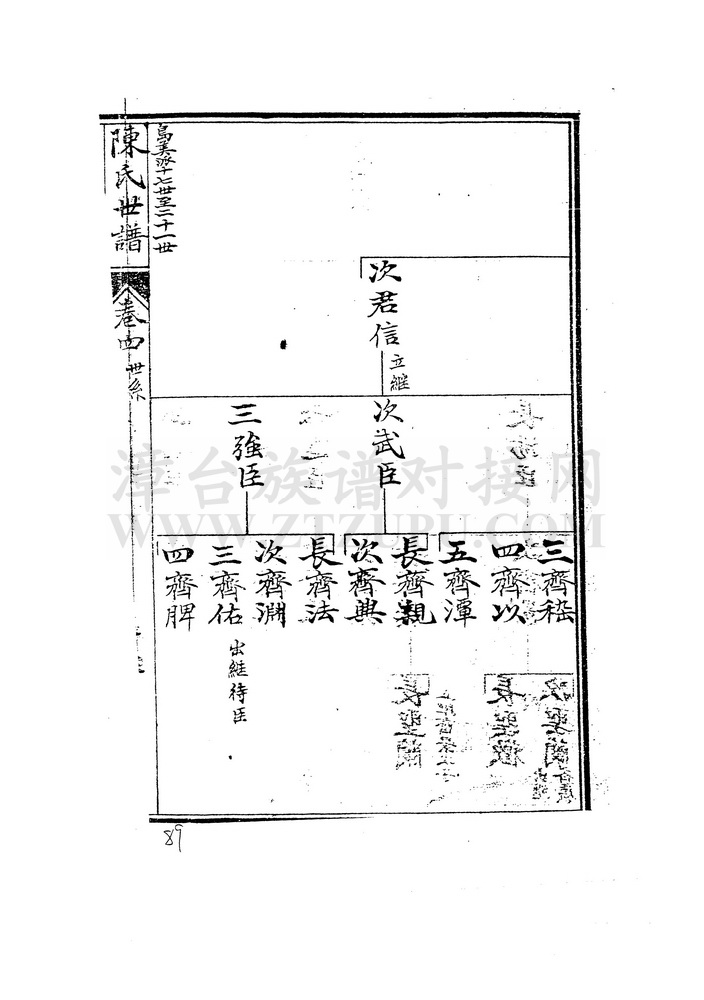 陳氏世譜
卷四
世系
烏美派十七世至二十一世
次君信
立繼
次武臣
三強臣
三齊
四齊以
五齊渾
長齊親
次齊典
長齊法
次齊淵
三齊佑
出繼待臣
四齊脾
漳台族谱对接网
WWW.ZTZUPU.COM
89